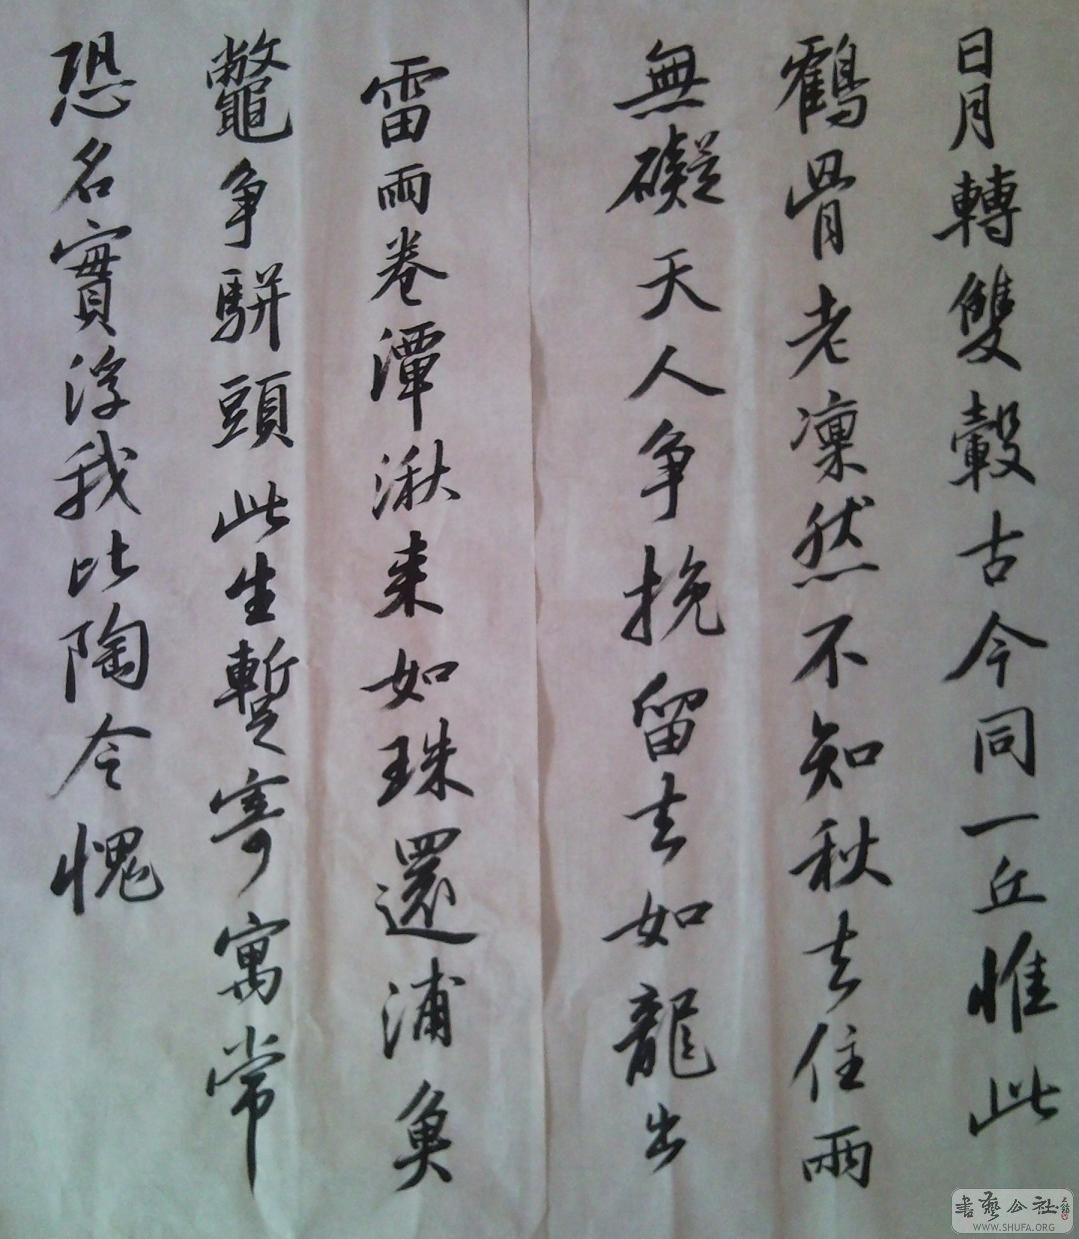 日月轉雙轂古今同一丘惟此
鶴骨老凜然不知秋去住兩
無礙天人争挽留去如龍出
雷雨卷潭湫来如珠還浦魚
鼈争駢頭此生暫寄寓常
恐名實浮我比陶令愧
書藝公社
WWW.SHUFA.ORG